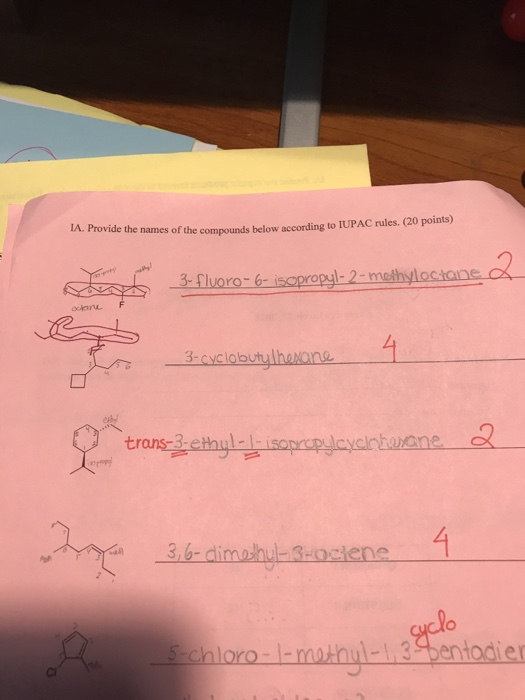 IA. Provide the names of the compounds below according to IUPAC rules. (20 points)
isopropyl
methyl
3-fluoro-6-isopropyl-2-methyloctane 2
octane F
3-cyclobutylhexane 4
ethyl
trans-3-ethyl-1-isopropylcyclohexane 2
isopropyl
3,6-dimethyl-3-octene 4
cyclo
5-chloro-1-methyl-1,3-pentadien
Cl